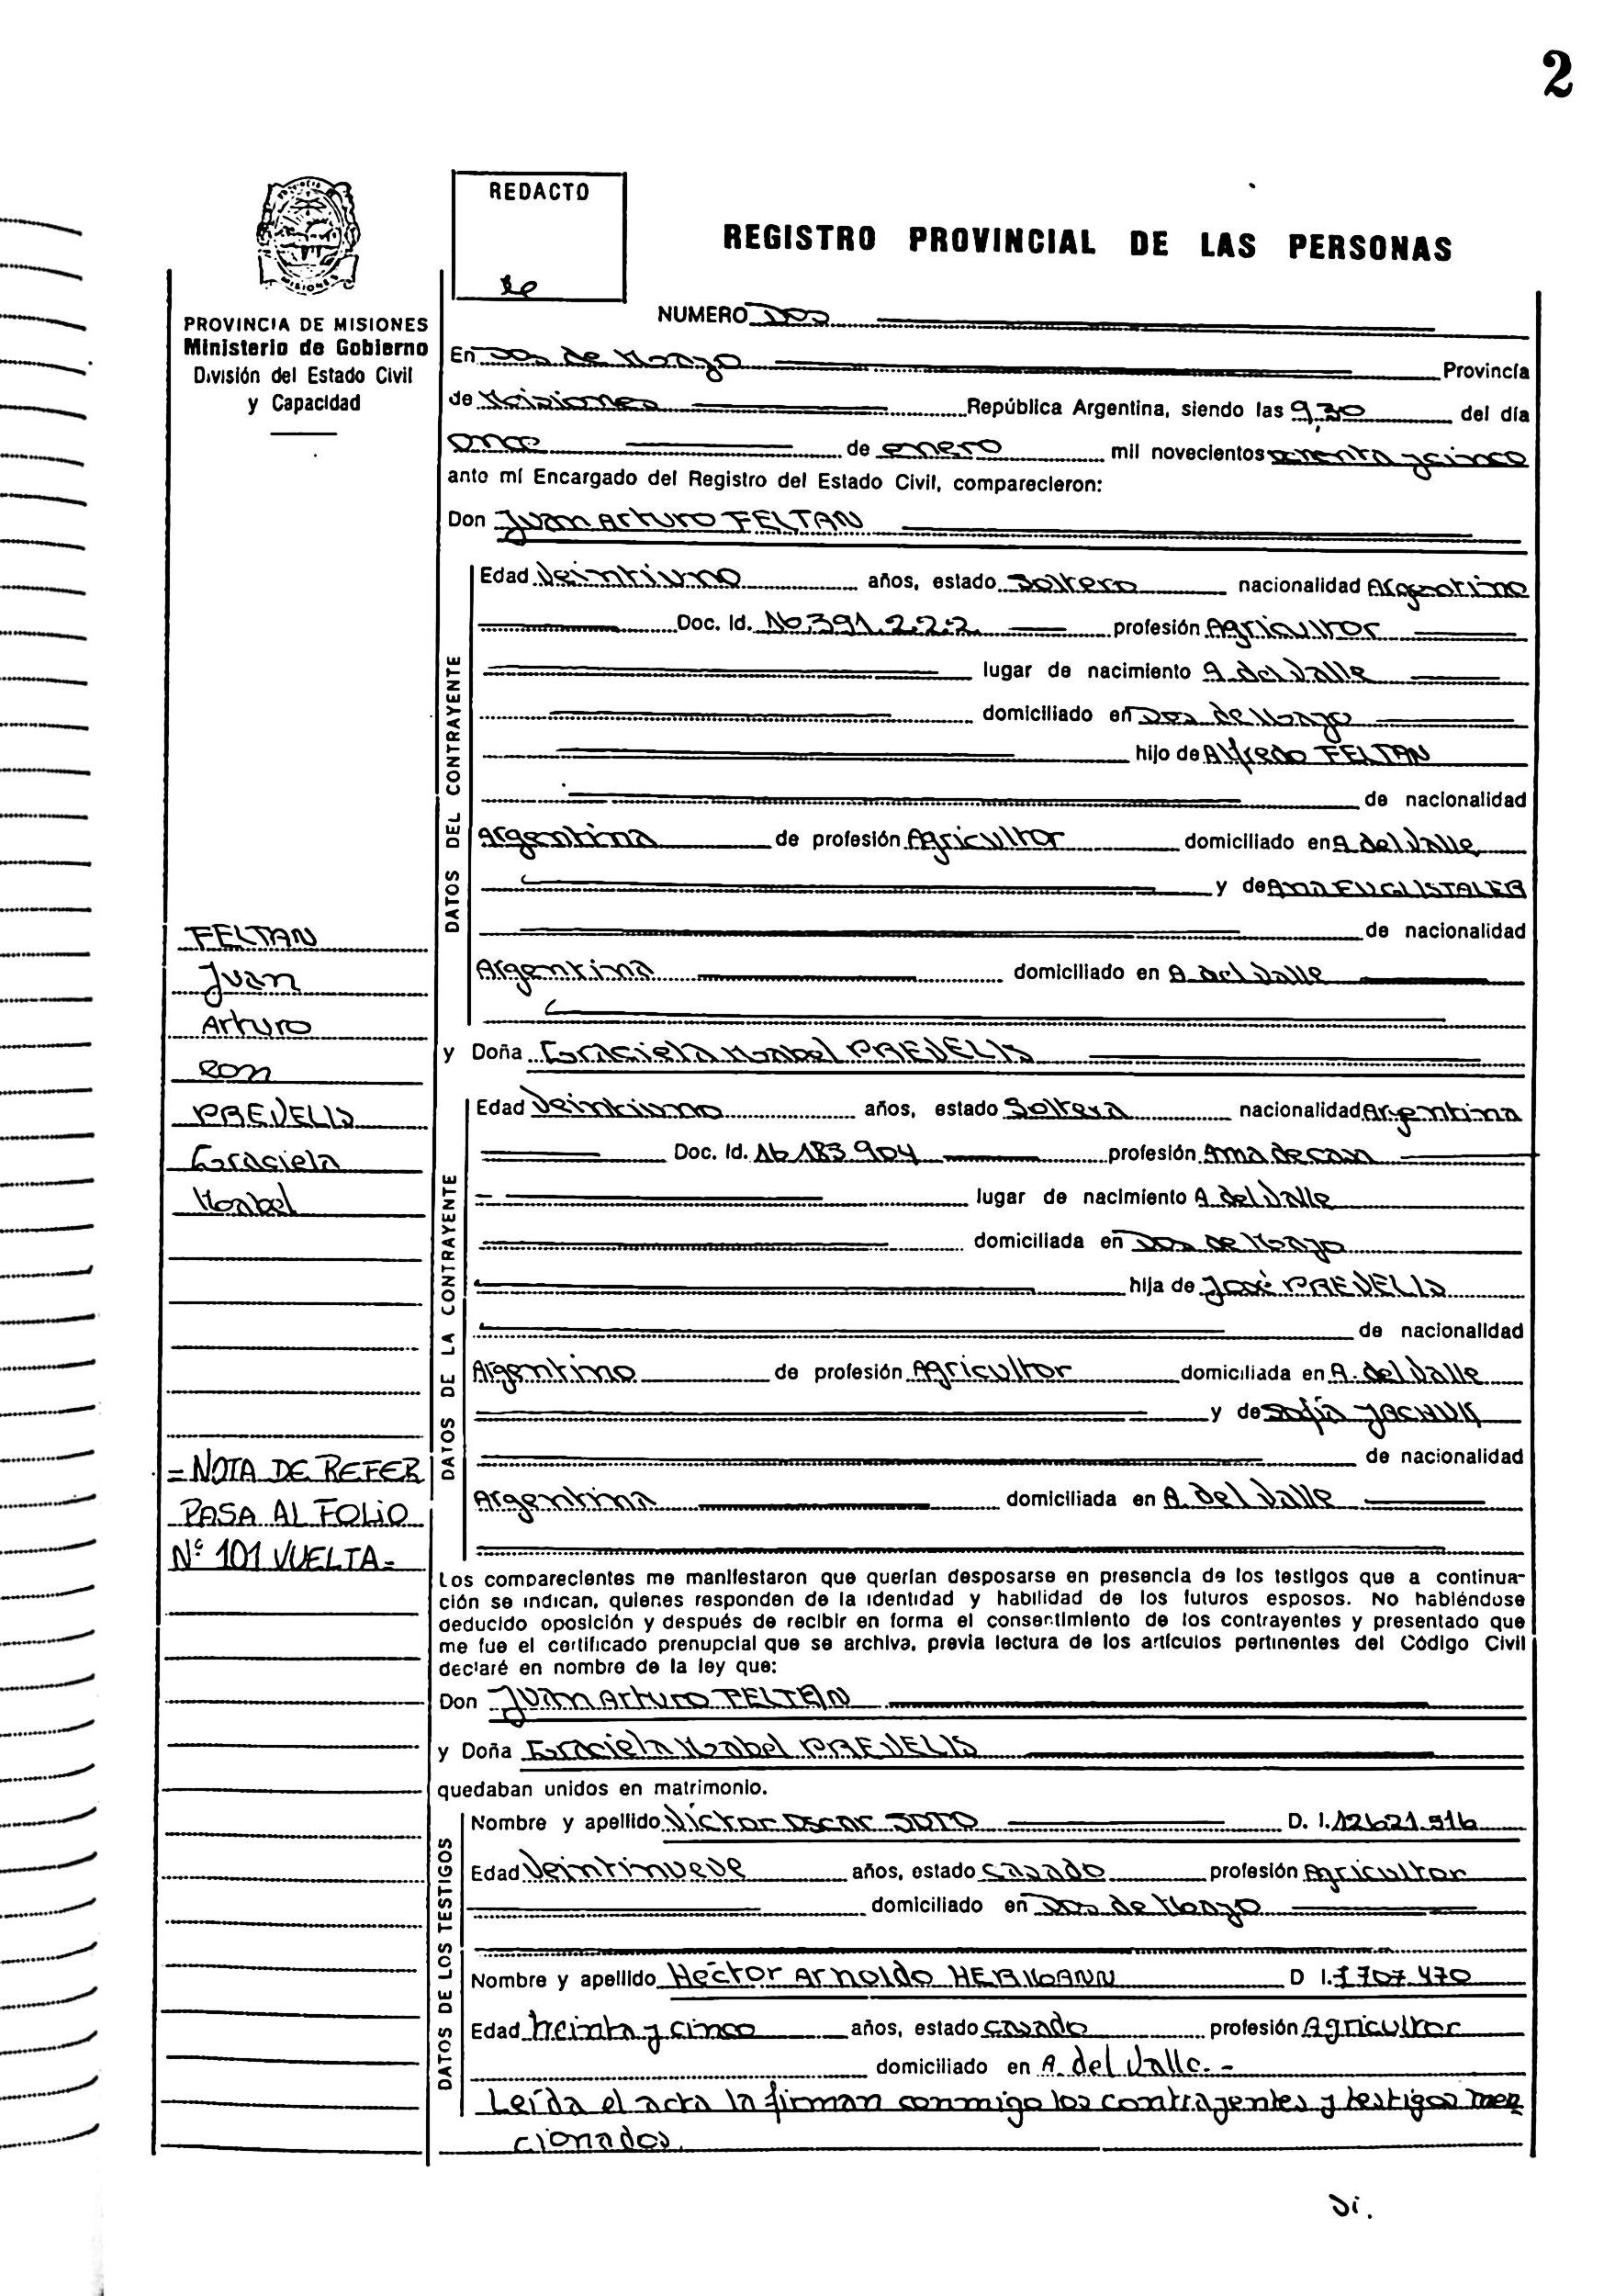 2
REDACTO
REGISTRO PROVINCIAL DE LAS PERSONAS
PROVINCIA DE MISIONES
Ministerio de Gobierno
División del Estado Civil
y Capacidad
NUMERO Dos
En Dos de Mayo Provincia
de Misiones República Argentina, siendo las 9,30 del día
once de enero mil novecientos ochenta y cinco
ante mí Encargado del Registro del Estado Civil, comparecieron:
Don Juan Arturo FELTAN
DATOS DEL CONTRAYENTE
Edad Veintiuno años, estado Soltero nacionalidad Argentino
Doc. Id. 16.391.222 profesión Agricultor
lugar de nacimiento A. del Valle
domiciliado en Dos de Mayo
hijo de Alfredo FELTAN
de nacionalidad
Argentina de profesión Agricultor domiciliado en A del Valle
y de Ana
de nacionalidad
Argentina domiciliado en A del Valle
y Doña Graciela Mabel PREVELIS
DATOS DE LA CONTRAYENTE
Edad Veintiuno años, estado Soltera nacionalidad Argentina
Doc. Id. 16 183 904 profesión Ama de casa
lugar de nacimiento A del Valle
domiciliada en Dos de Mayo
hija de José PREVELIS
de nacionalidad
Argentino de profesión Agricultor domiciliada en A. del Valle
y de Sofía
de nacionalidad
Argentina domiciliada en A. del Valle
FELTAN
Juan
Arturo
con
PREVELIS
Graciela
Mabel
= NOTA DE REFER
PASA AL FOLIO
Nº 101 VUELTA =
Los comparecientes me manifestaron que querían desposarse en presencia de los testigos que a continua-
ción se indican, quienes responden de la identidad y habilidad de los futuros esposos. No habiéndose
deducido oposición y después de recibir en forma el consentimiento de los contrayentes y presentado que
me fue el certificado prenupcial que se archiva, previa lectura de los artículos pertinentes del Código Civil
declaré en nombre de la ley que:
Don Juan Arturo FELTAN
y Doña Graciela Mabel PREVELIS
quedaban unidos en matrimonio.
DATOS DE LOS TESTIGOS
Nombre y apellido Victor Oscar SOTO D. I. 12621.916
Edad Veintinueve años, estado casado profesión Agricultor
domiciliado en Dos de Mayo
Nombre y apellido Hector Arnoldo HERMANN D I. 7707 470
Edad treinta y cinco años, estado casado profesión Agricultor
domiciliado en A. del Valle. -
Leída el acta la firman conmigo los contrayentes y testigos men
cionados.